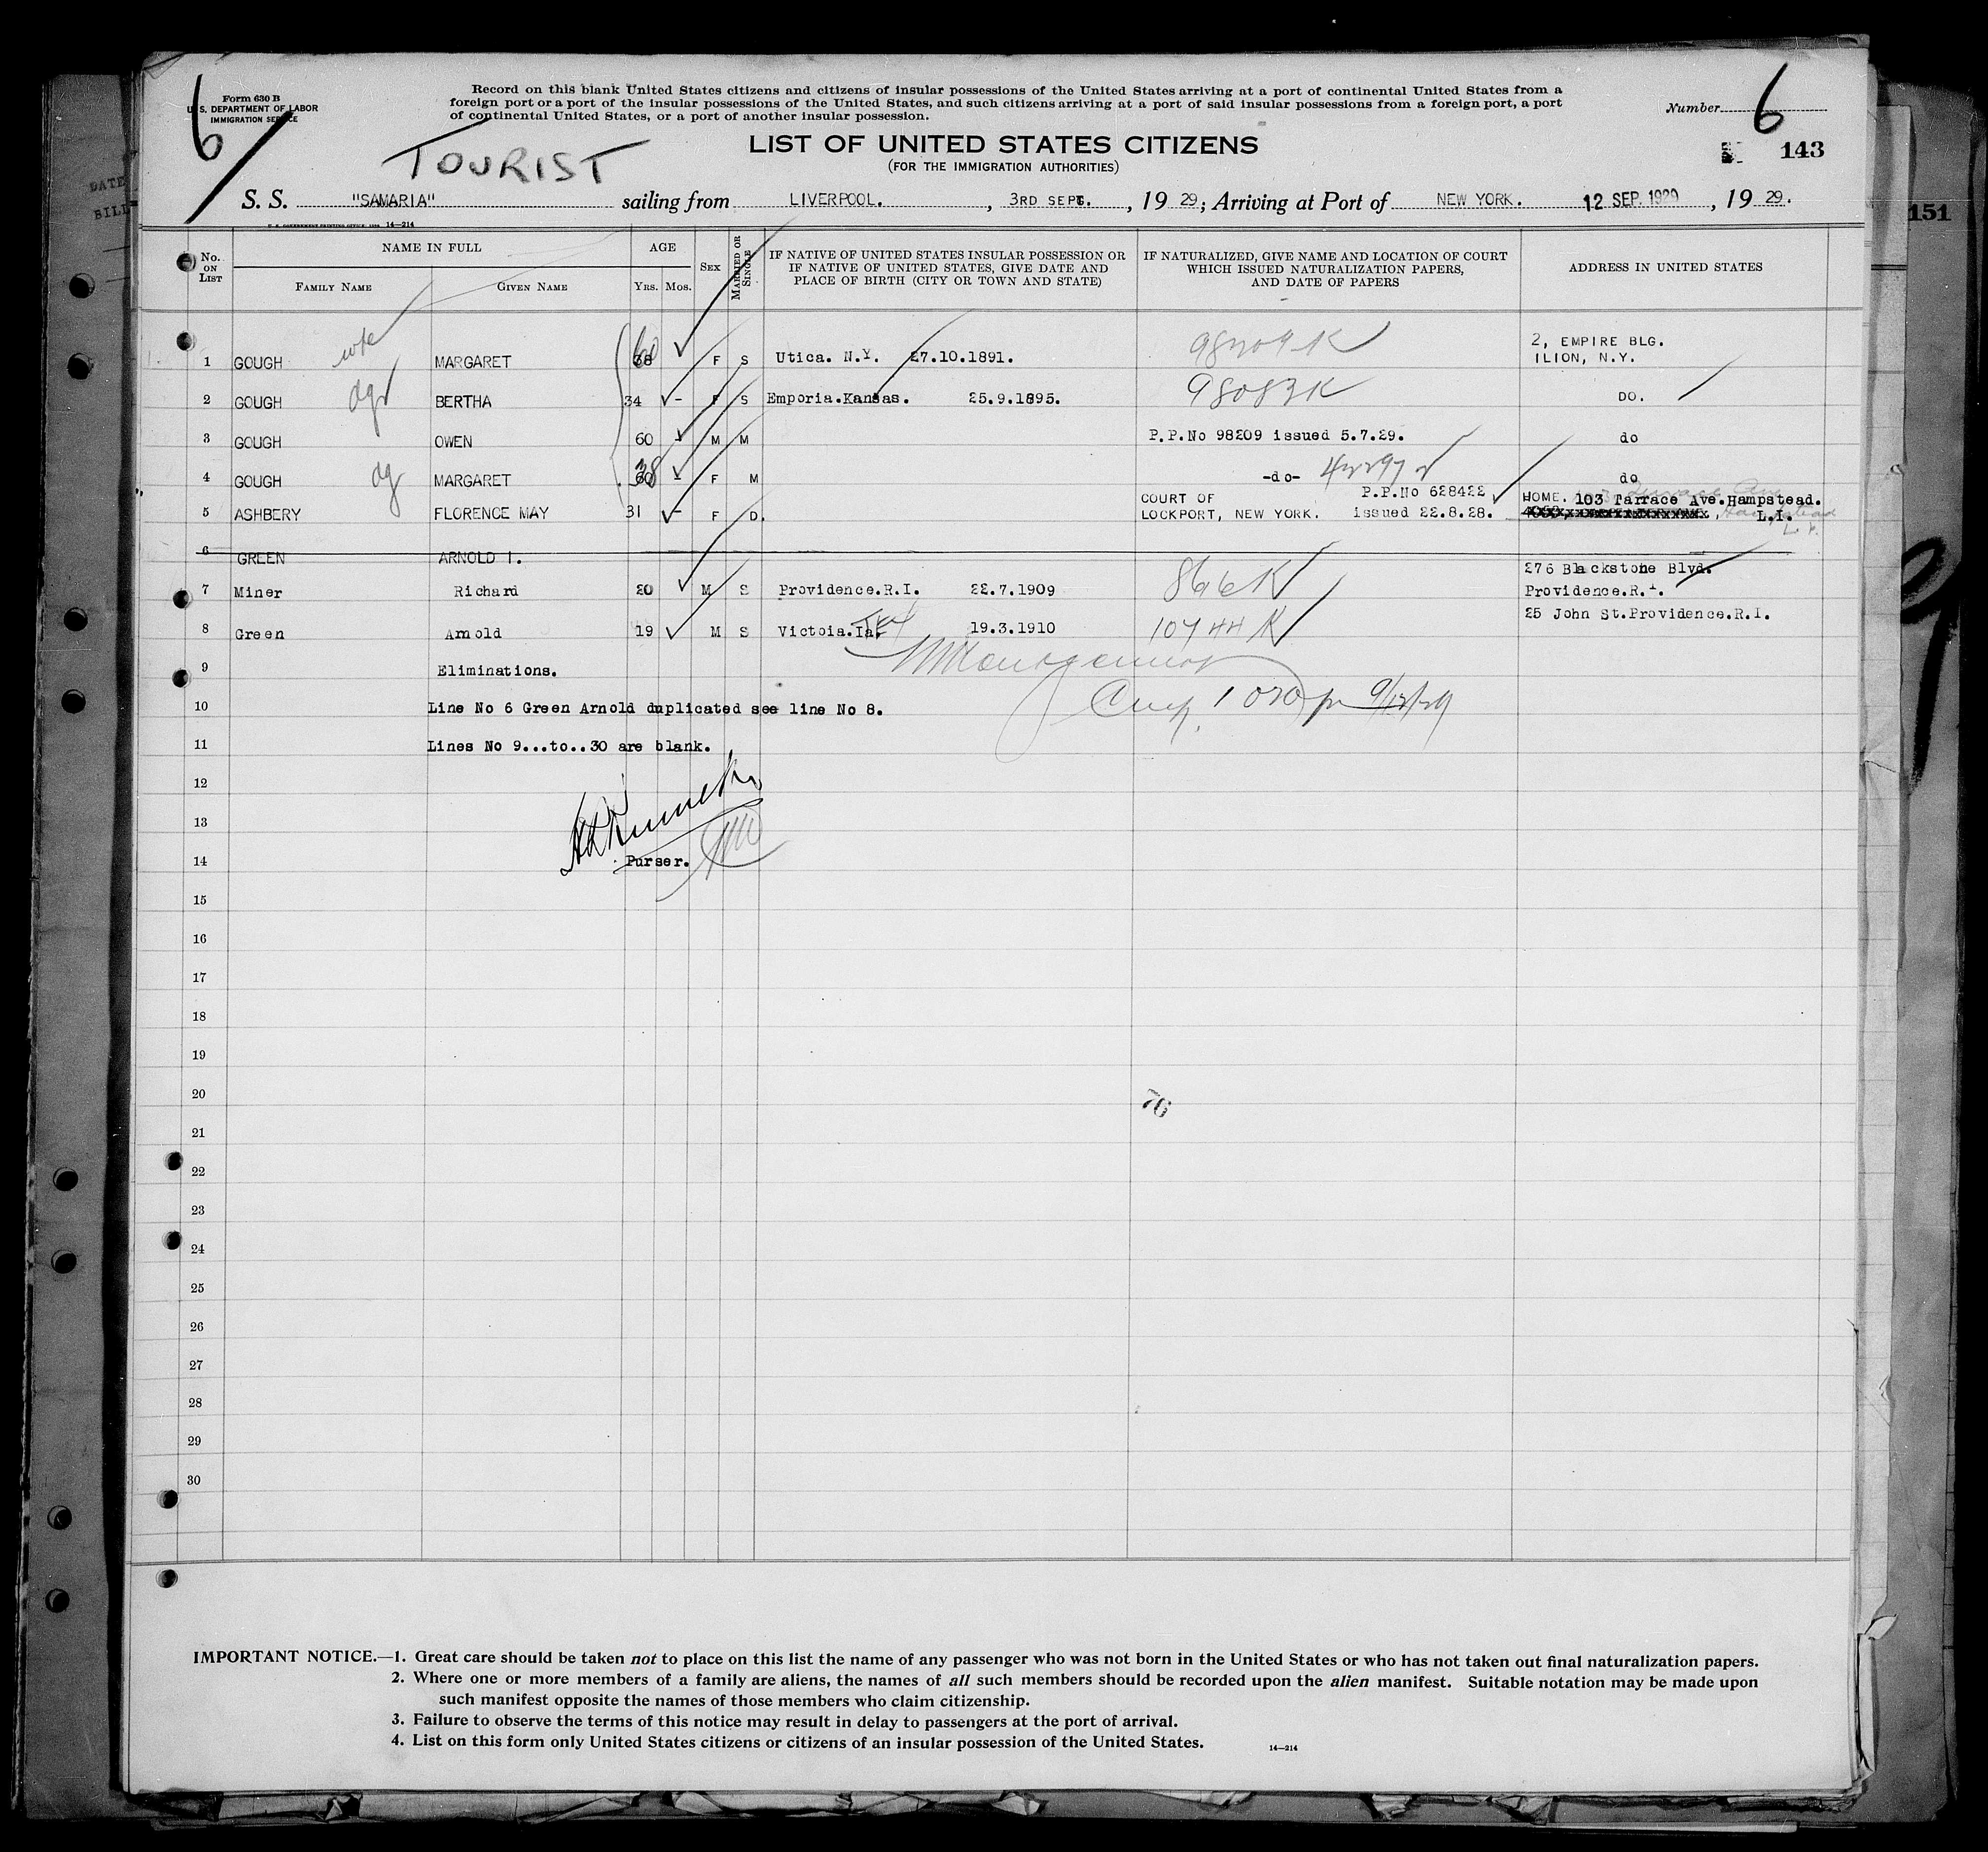 6
Form 630 B
U. S. DEPARTMENT OF LABOR
IMMIGRATION SERVICE
Record on this blank United States citizens and citizens of insular possessions of the United States arriving at a port of continental United States from a
foreign port or a port of the insular possessions of the United States, and such citizens arriving at a port of said insular possessions from a foreign port, a port
of continental United States, or a port of another insular possession.
Number 6
TOURIST
LIST OF UNITED STATES CITIZENS
(FOR THE IMMIGRATION AUTHORITIES)
143
S. S. "SAMARIA" sailing from LIVERPOOL. , 3RD SEPT. , 19 29 ; Arriving at Port of NEW YORK. 12 SEP. 1929 , 19 29.
U. S. GOVERNMENT PRINTING OFFICE 14—214
DATE
BILL
151
No. ON LIST
NAME IN FULL
FAMILY NAME
GIVEN NAME
AGE
YRS. MOS.
SEX
MARRIED OR SINGLE
IF NATIVE OF UNITED STATES INSULAR POSSESSION OR
IF NATIVE OF UNITED STATES, GIVE DATE AND
PLACE OF BIRTH (CITY OR TOWN AND STATE)
IF NATURALIZED, GIVE NAME AND LOCATION OF COURT
WHICH ISSUED NATURALIZATION PAPERS,
AND DATE OF PAPERS
ADDRESS IN UNITED STATES
1 GOUGH wfe MARGARET 38 60 F S Utica. N.Y. 27.10.1891. 98209K 2, EMPIRE BLG.
ILION, N.Y.
2 GOUGH dg BERTHA 34 - F S Emporia.Kansas. 25.9.1895. 98083K DO.
3 GOUGH OWEN 60 - M M P.P.No 98209 issued 5.7.29. do
4 GOUGH dg MARGARET 60 38 - F M -do- do
5 ASHBERY FLORENCE MAY 31 - F D. COURT OF P.P.No 628422 HOME. 103 Tarrace Ave.Hampstead.
LOCKPORT, NEW YORK. issued 22.8.28. L.I.
6 GREEN ARNOLD I.
7 Miner Richard 20 M S Providence.R.I. 22.7.1909 866K 276 Blackstone Blvd.
Providence.R.I.
8 Green Arnold 19 M S Victoia.Ia. TEX 19.3.1910 10744K 25 John St.Providence.R.I.
9 Eliminations.
10 Line No 6 Green Arnold duplicated see line No 8.
9/12/29
11 Lines No 9...to..30 are blank.
12
13
14 Purser.
15
16
17
18
19
20
76
21
22
23
24
25
26
27
28
29
30
IMPORTANT NOTICE.—1. Great care should be taken not to place on this list the name of any passenger who was not born in the United States or who has not taken out final naturalization papers.
2. Where one or more members of a family are aliens, the names of all such members should be recorded upon the alien manifest. Suitable notation may be made upon
such manifest opposite the names of those members who claim citizenship.
3. Failure to observe the terms of this notice may result in delay to passengers at the port of arrival.
4. List on this form only United States citizens or citizens of an insular possession of the United States.
14—214